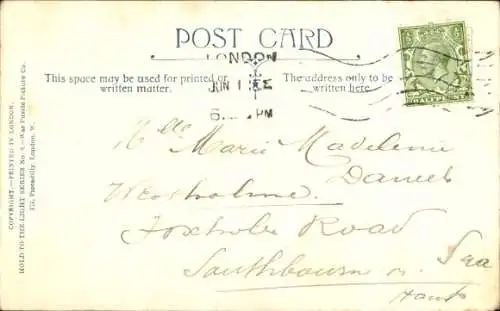 POST CARD
LONDON
This space may be used for printed or
written matter.
The address only to be
written here.
JUN 1
PM
HALFPENNY
Mlle Marie Madeleine
Daniels
Westholme
Foxholes Road
Southbourn on Sea
Hants
COPYRIGHT.—PRINTED IN LONDON.
HOLD TO THE LIGHT SERIES No. 4.—War Puzzle Picture Co.
Piccadilly, London, W.